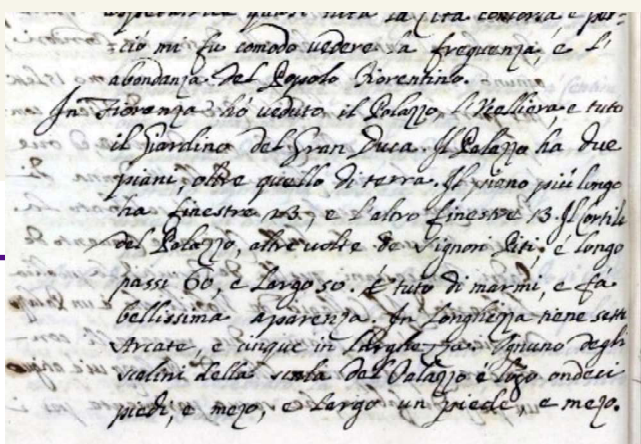 aspettativa quasi tuta la Cità concorsa e per-
ciò mi fu comodo vedere la frequenza, e l'
abondanza del Popolo Fiorentino.
In Fiorenza hò veduto il Palazzo, l' e tuto
il Giardino del Gran Duca. Il Palazzo ha due
piani, oltre quello di terra. Il piano più lungo
ha finestre 23, e l'altro finestre 13. Il Cortile
del Palazzo, altre volte de Signori Piti, è longo
passi 60, e largo 50. È tuto di marmi, e fà
bellissima aparenza. In longhezza tiene sette
Arcate e cinque in larghezza. Ognuno degli
scalini della scala del Palazzo è logo ondeci
piedi, e mezo, e largo un piede e mezo.